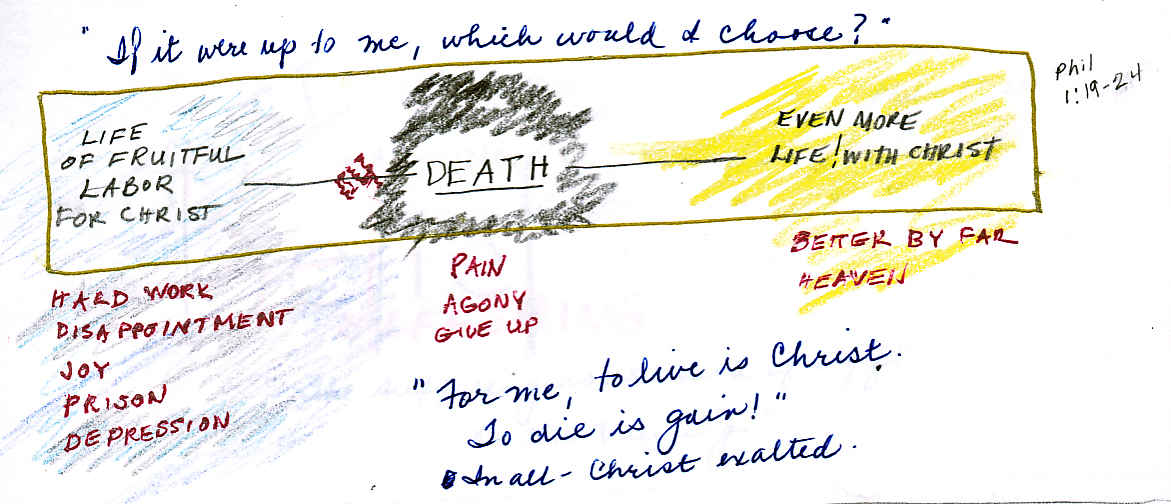 "If it were up to me, which would I choose?"
Phil
1:19-24
LIFE
OF FRUITFUL
LABOR
FOR CHRIST
DEATH
EVEN MORE
LIFE! WITH CHRIST
HARD WORK
DISAPPOINTMENT
JOY
PRISON
DEPRESSION
PAIN
AGONY
GIVE UP
BETTER BY FAR
HEAVEN
"For me, to live is Christ.
To die is gain!"
In all - Christ exalted.